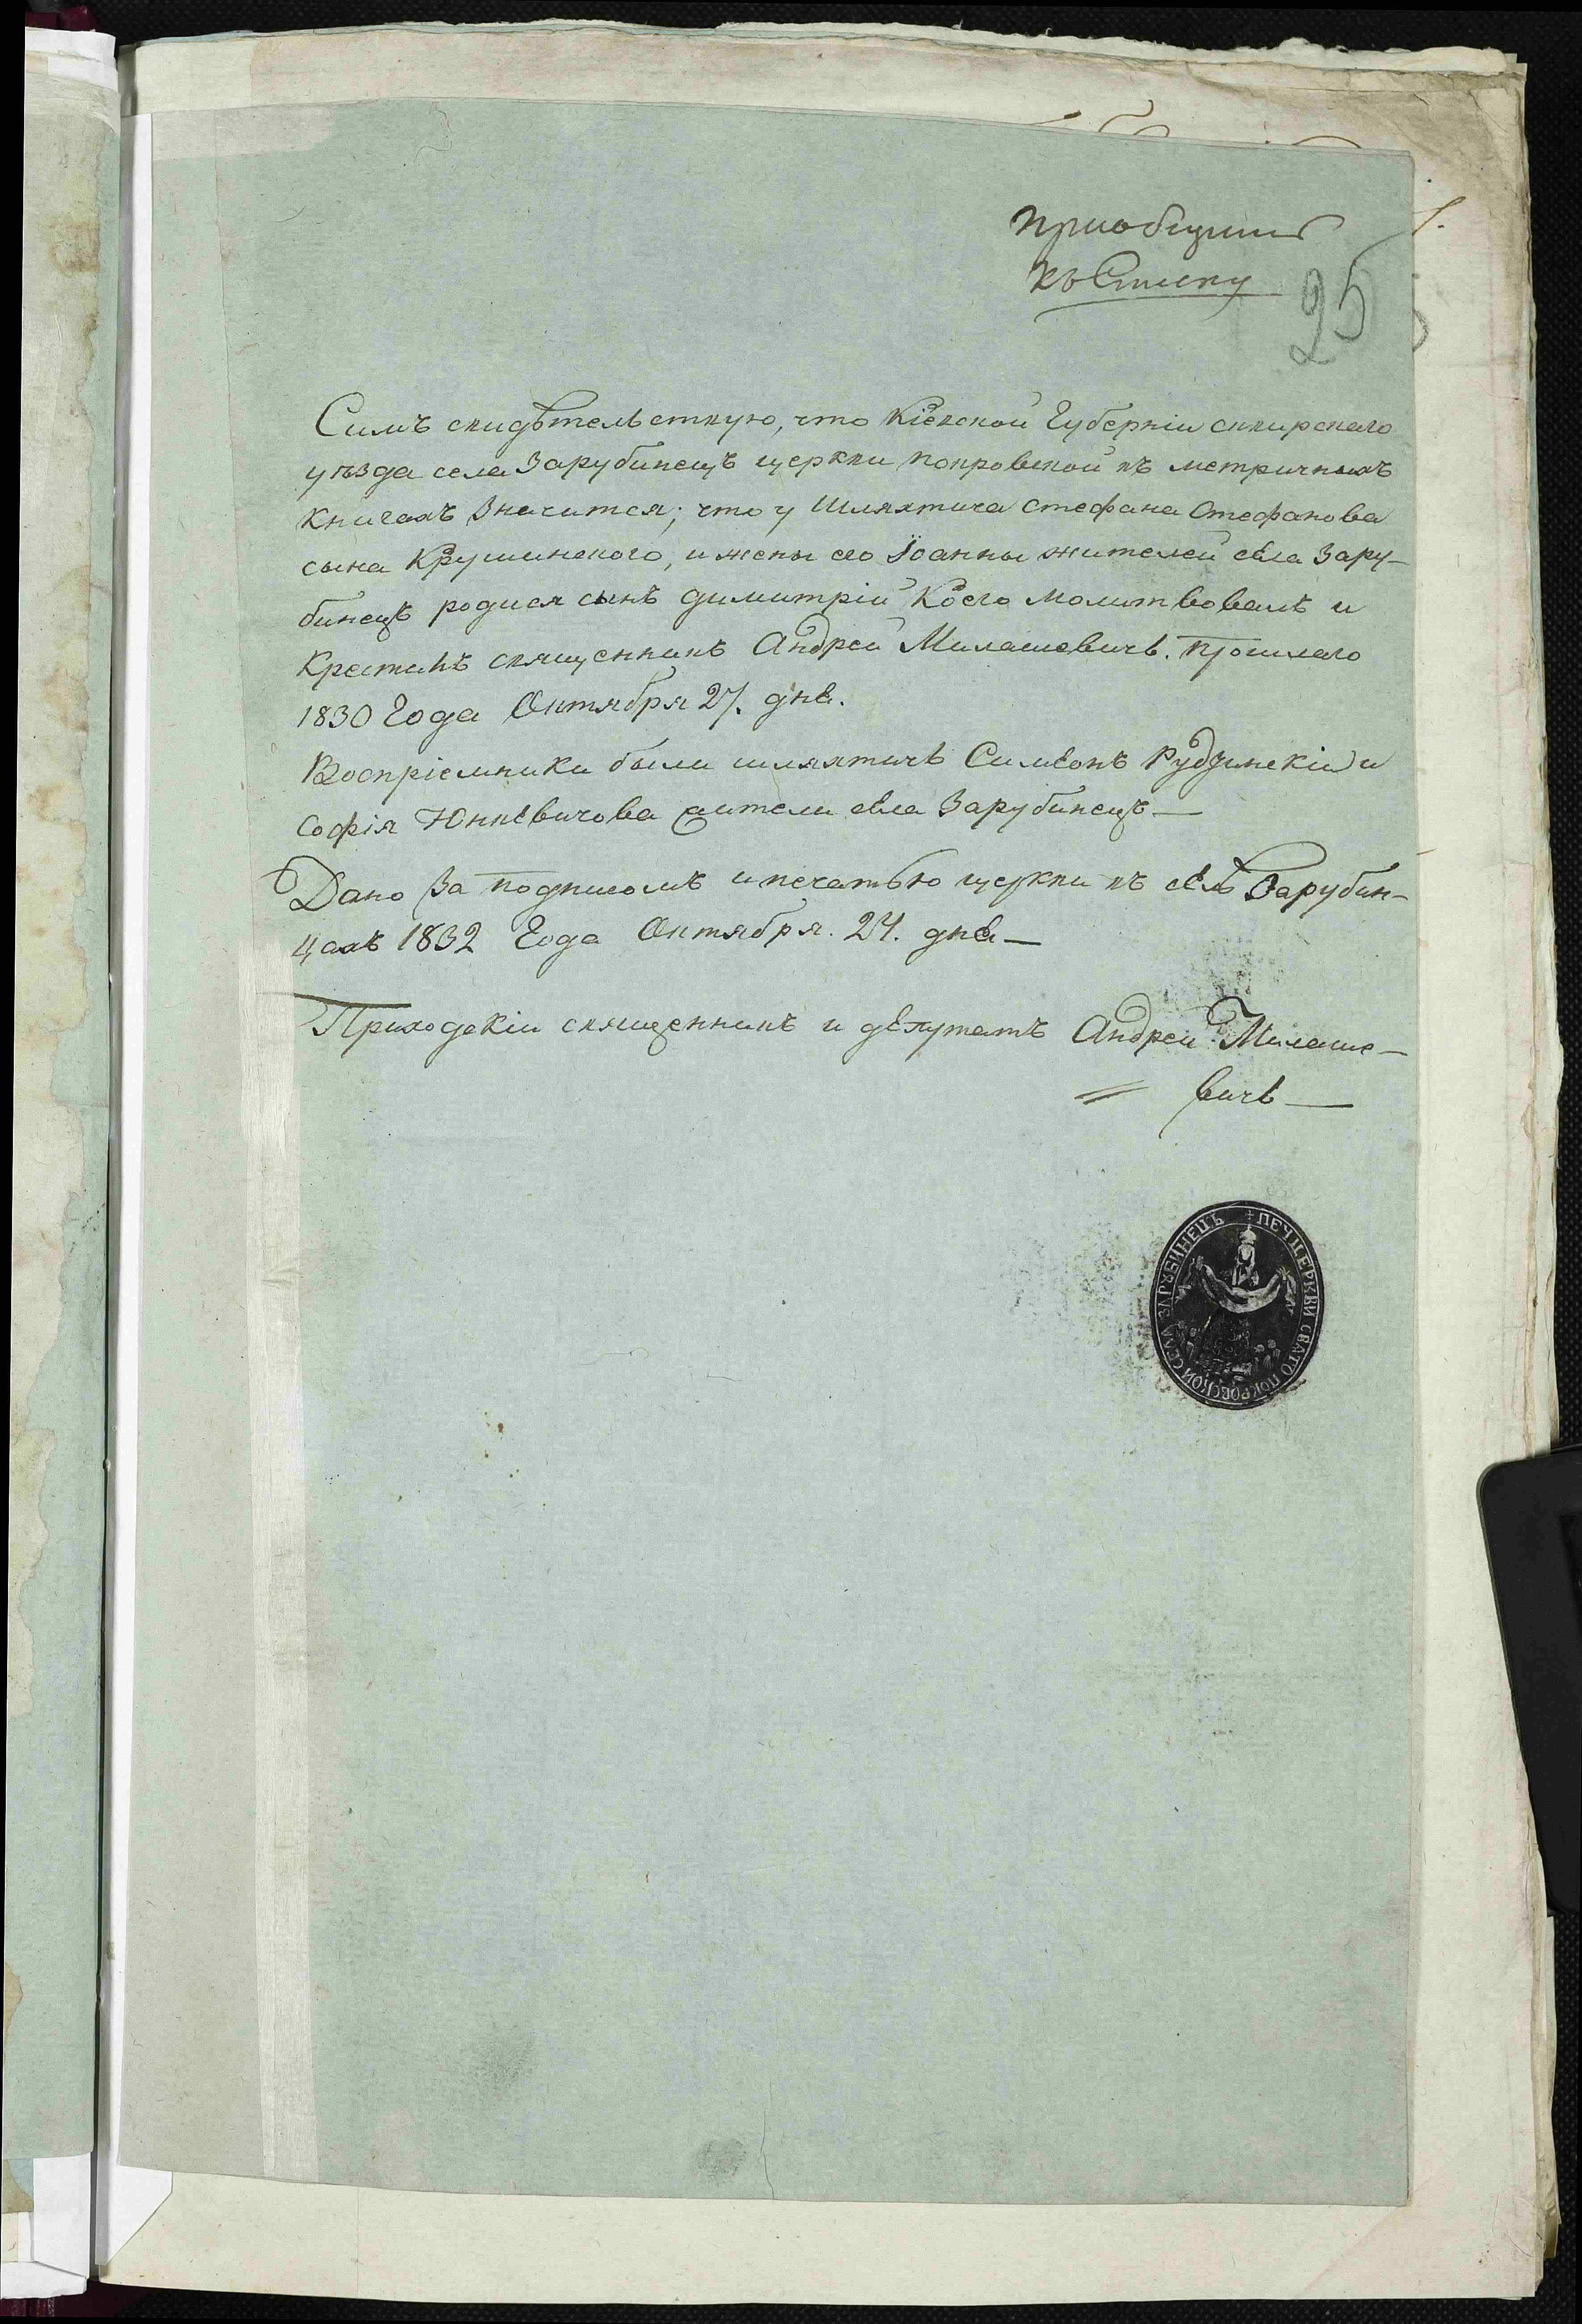 приобщить
къ списку
25
Симъ свидѣтельствую, что Кіевской Губерніи сквирскаго
уѣзда села Зарубинецъ церкви покровской въ метричныхъ
книгахъ значится; что у шляхтича стефана Стефанова
сына Крушинского, и жены его Іоанны жителей села Зару-
бинецъ родися сынъ димитрій коего молитвовалъ и
крестилъ священникъ Андрей Милашевичъ. прошлаго
1830 Года Октября 27. дня.
Воспріемники были шляхтичъ Симеонъ Рудзинскій и
софія Юнкевичова жители села Зарубинецъ—
Дано за подписомъ и печатью церкви въ селѣ Зарубин-
цахъ 1832 Года Октября. 24. дня—
Приходскій священникъ и депутатъ Андрей Милаше-
= вичъ—
+ ПЕЧ: ЦЕРКВИ СВАТО ПОКРОВСКОЙ СЕЛА ЗАРУБИНЕЦЪ